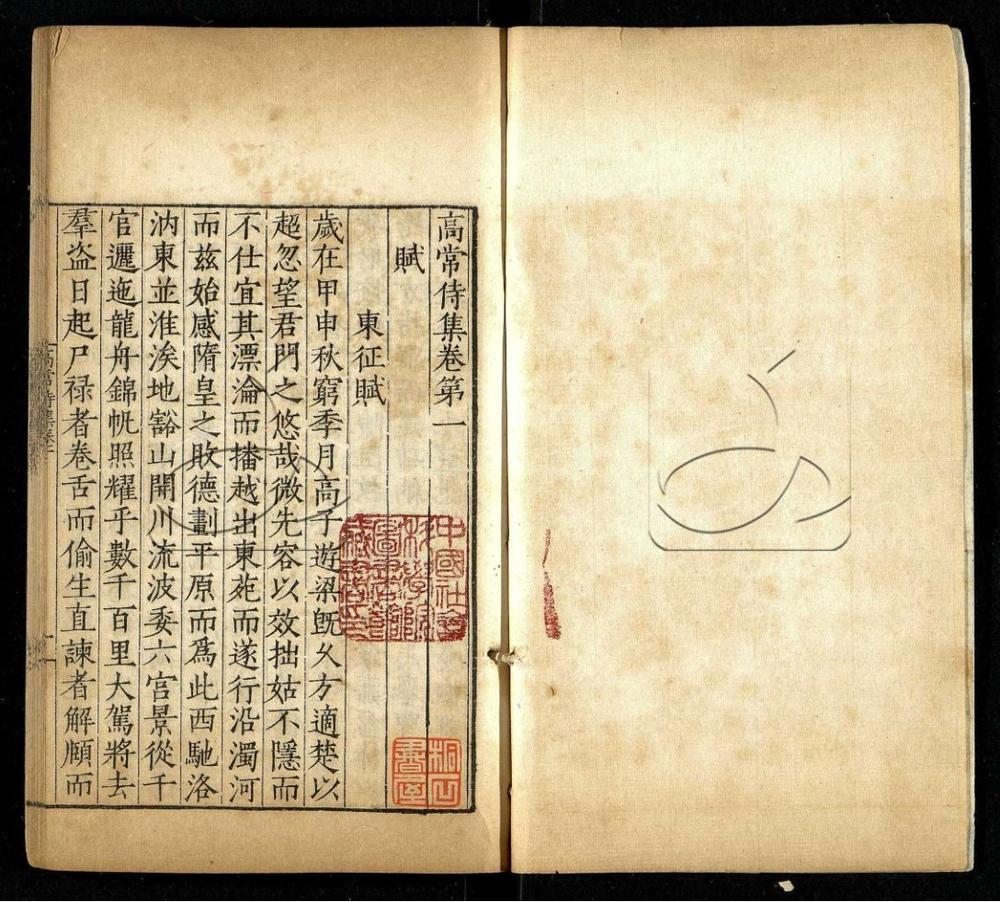 高常侍集卷第一
賦
東征賦
歲在甲申秋窮季月高子遊梁既久方適楚以
超忽望君門之悠哉微先容以效拙姑不隱而
不仕宜其漂淪而播越出東苑而遂行沿濁河
而茲始感隋皇之敗德劃平原而為此西馳洛
汭東並淮涘地豁山開川流波委六宮景從千
官邐迤龍舟錦帆照耀乎數千百里大駕將去
羣盗日起尸禄者卷舌而偷生直諫者解頤而
中國社會
科學院
圖書館
藏書印
桐山
書屋